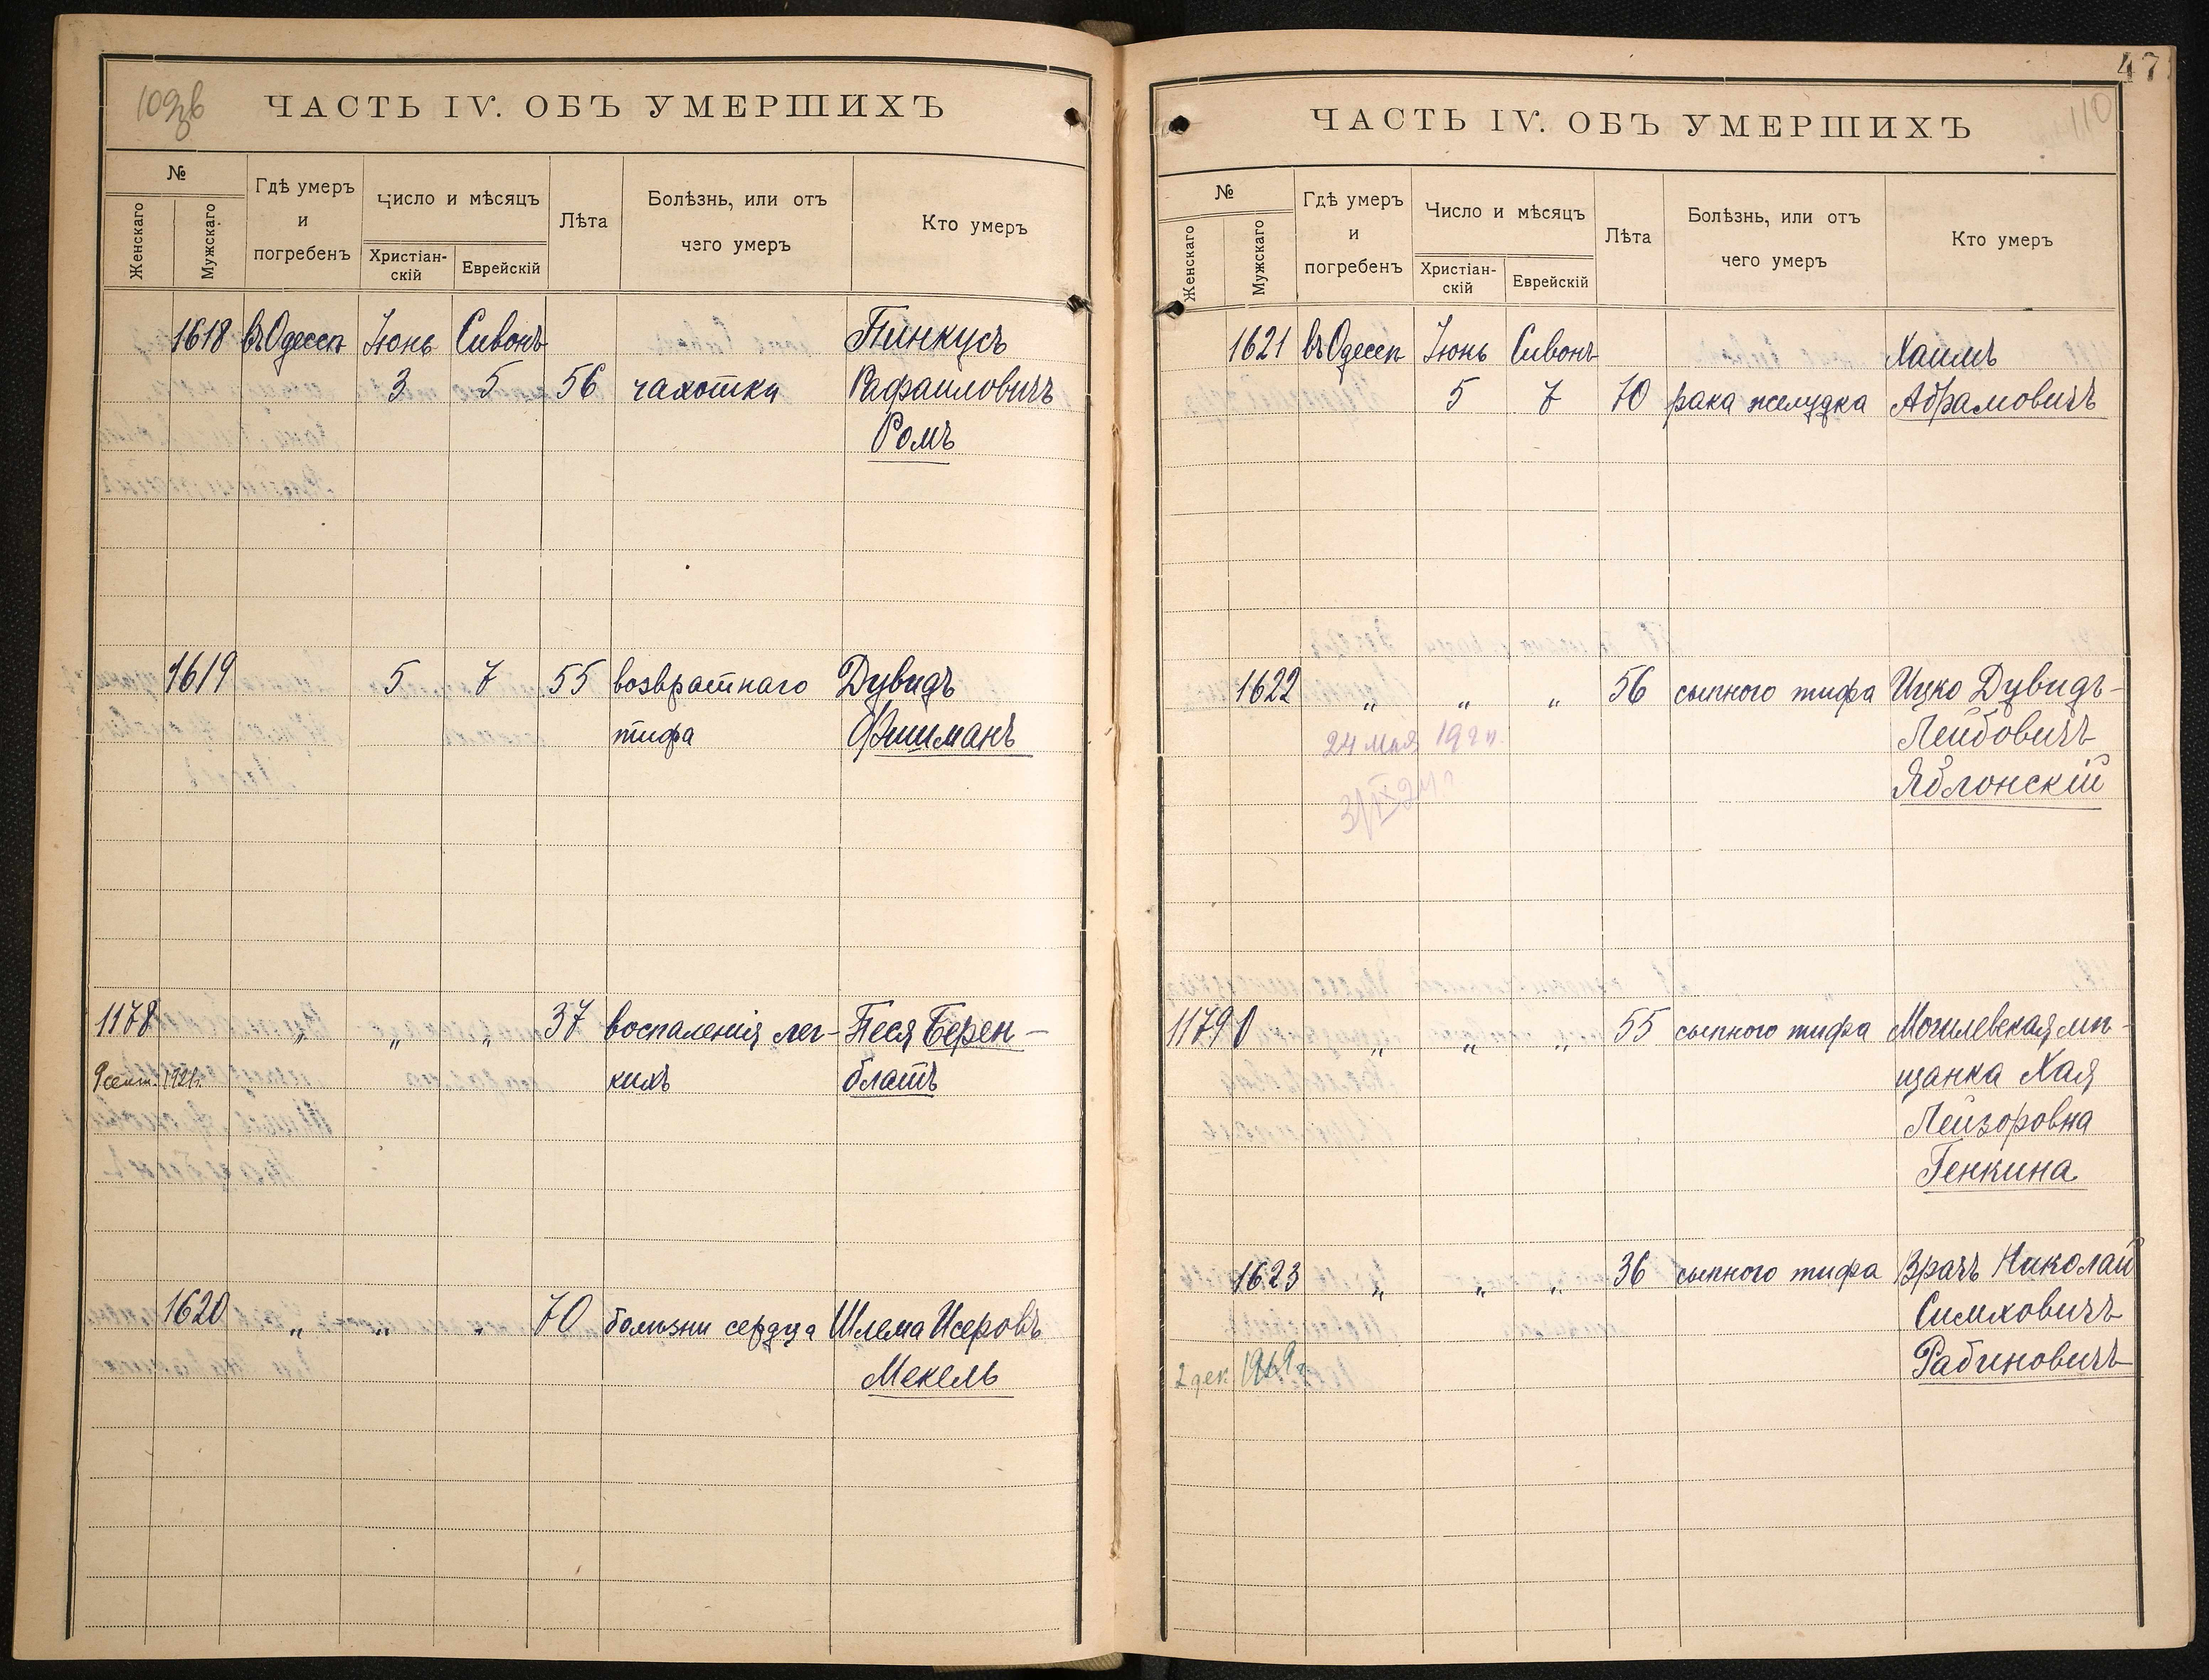 109зв
ЧАСТЬ IV. ОБЪ УМЕРШИХЪ
№
Женскаго
Мужскаго
Гдѣ умеръ
и
погребенъ
Число и мѣсяцъ
Христіан-
скій
Еврейскій
Лѣта
Болѣзнь, или отъ
чего умеръ
Кто умеръ
1618 въ Одессѣ Іюнь Сивонъ Пинкусъ
3 5 56 чахотки Рафаиловичъ
Ромъ
1619 5 7 55 возвратнаго Дувидъ
тифа Фишманъ
1178 " " " 37 воспаленія лег- Песя Берен-
9 сент. 1921г. кихъ блатъ
1620 " " " 70 болѣзни сердца Шлема Исеровъ
Мекель
47
110
ЧАСТЬ IV. ОБЪ УМЕРШИХЪ
№
Женскаго
Мужскаго
Гдѣ умеръ
и
погребенъ
Число и мѣсяцъ
Христіан-
скій
Еврейскій
Лѣта
Болѣзнь, или отъ
чего умеръ
Кто умеръ
1621 въ Одессѣ Іюнь Сивонъ Хаимъ
5 7 70 рака желудка Абрамовичъ
1622 " " " 56 сыпного тифа Ицко Дувидъ-
24 мая Лейбовичъ
3/IX 24г. Яблонскій
1179 " " " 55 сыпного тифа Могилевская мѣ-
щанка Хая
Лейзоровна
Генкина
1623 " " " 36 сыпного тифа Врачъ Николай
Симховичъ
2 дек. Рабиновичъ